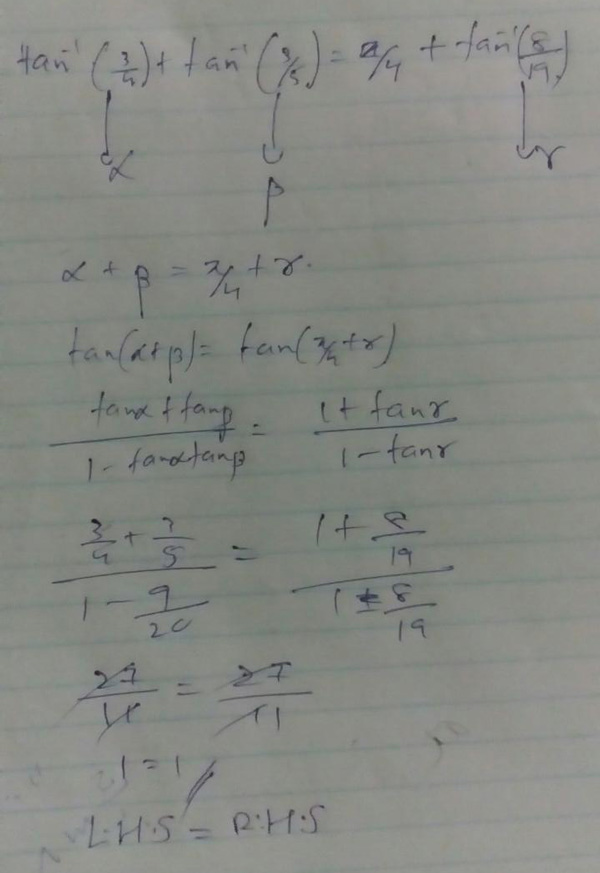 tan⁻¹(3/4) + tan⁻¹(3/5) = π/4 + tan⁻¹(8/19)
α β γ
α + β = π/4 + γ.
tan(α+β) = tan(π/4+γ)
(tanα + tanβ)/(1 - tanαtanβ) = (1 + tanγ)/(1 - tanγ)
(3/4 + 3/5)/(1 - 9/20) = (1 + 8/19)/(1 - 8/19)
27/11 = 27/11
1 = 1
L.H.S = R.H.S